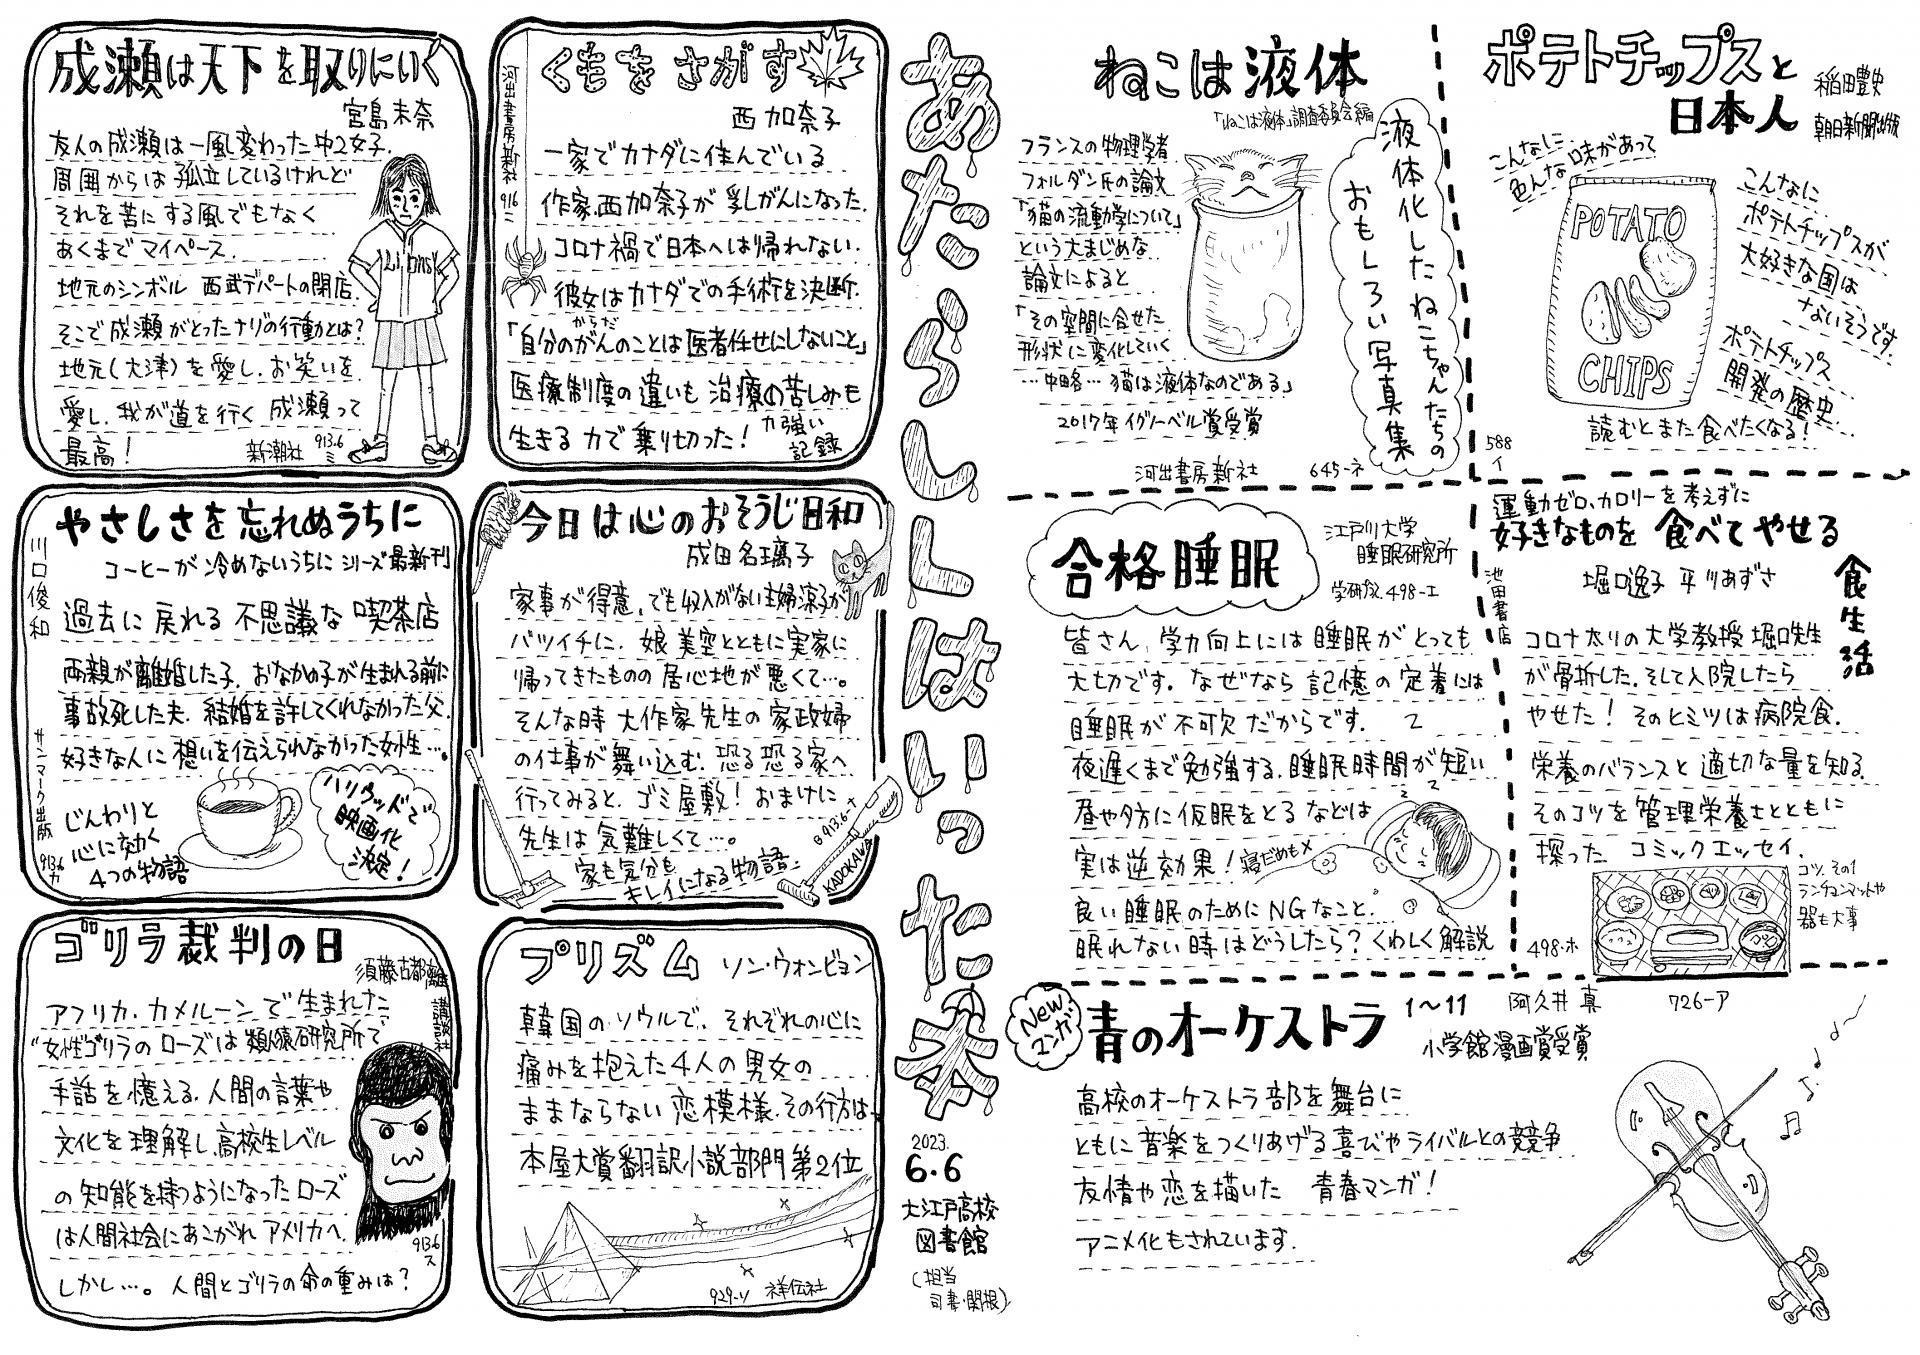 あたらしくはいった本
2023.
6・6
大江戸高校
図書館
(担当
司書・関根)
成瀬は天下を取りにいく
宮島未奈
友人の成瀬は一風変わった中2女子.
周囲からは孤立しているけれど
それを苦にする風でもなく
あくまでマイペース.
地元のシンボル 西武デパートの閉店.
そこで成瀬がとったナゾの行動とは?
地元(大津)を愛し.お笑いを
愛し.我が道を行く 成瀬って
最高!
新潮社
913.6
ミ
Lions
くもをさがす
西加奈子
河出書房新社 916 ニ
一家でカナダに住んでいる
作家.西加奈子が 乳がんになった.
コロナ禍で日本へは帰れない.
彼女はカナダでの手術を決断.
からだ
「自分のがんのことは医者任せにしないこと」
医療制度の違いも 治療の苦しみも
生きる力で乗り切った!
力強い
記録
やさしさを忘れぬうちに
コーヒーが冷めないうちに シリーズ最新刊
川口俊和
過去に戻れる 不思議な 喫茶店
両親が離婚した子.おなかの子が生まれる前に
事故死した夫. 結婚を許してくれなかった父.
好きな人に想いを伝えられなかった女性…。
サンマーク出版
913.6
カ
じんわりと
心に効く
4つの物語
ハリウッドで
映画化
決定!
今日は心のおそうじ日和
成田名璃子
家事が得意.でも収入がない主婦涼子が
バツイチに. 娘 美空とともに実家に
帰ってきたものの 居心地が悪くて…。
そんな時 大作家先生の 家政婦
の仕事が舞い込む. 恐る恐る家へ
行ってみると. ゴミ屋敷! おまけに
先生は 気難しくて…。
家も気分も
キレイになる物語
B913.6-ナ
KADOKAWA
ゴリラ裁判の日
須藤古都離
講談社
アフリカ.カメルーンで生まれた
女性ゴリラの ローズは 類猿研究所で
手話を 憶える.人間の言葉や
文化を 理解し.高校生レベル
の知能を持つようになった ローズ
は人間社会にあこがれ アメリカへ.
しかし…。 人間とゴリラの命の重みは?
913.6
ス
プリズム
ソン・ウォンピョン
韓国のソウルで. それぞれの心に
痛みを抱えた 4人の男女の
ままならない 恋模様.その行方は
本屋大賞翻訳小説部門第2位
929-ソ 祥伝社
ねこは液体
「ねこは液体」調査委員会編
フランスの物理学者
フォルダン氏の論文
「猫の流動学について」
という大まじめな
論文によると
「その空間に合せた
形状に変化していく
…中略…猫は液体なのである」
2017年 イグノーベル賞受賞
河出書房新社 645-ネ
液体化したねこちゃんたちの
おもしろい写真集
ポテトチップスと
日本人
稲田豊史
朝日新聞出版
こんなに
色んな味があって
こんなに
ポテトチップスが
大好きな国は
ないそうです.
POTATO
CHIPS
ポテトチップス
開発の歴史…
読むとまた食べたくなる!
588
イ
合格睡眠
江戸川大学
睡眠研究所
学研プラス 498-エ
皆さん. 学力向上には 睡眠が とっても
大切です. なぜなら 記憶の 定着には
睡眠が 不可欠 だからです.
夜遅くまで勉強する.睡眠時間が短い
昼や夕方に 仮眠をとる などは
実は逆効果! 寝だめも×
良い 睡眠のために NGなこと.
眠れない 時はどうしたら? くわしく解説
Z
z
Z
運動ゼロ、カロリーを考えずに
好きなものを 食べてやせる
食生活
堀口逸子 平川あずさ
池田書店
コロナ太りの 大学教授 堀口先生
が骨折した.そして入院したら
やせた! そのヒミツは 病院食.
栄養のバランスと 適切な量を知る.
そのコツを管理栄養士とともに
探った コミックエッセイ.
498-ホ
コツ.その1
ランチョンマットや
器も大事
New
マンガ
青のオーケストラ 1〜11
阿久井真
726-ア
小学館漫画賞受賞
高校のオーケストラ部を舞台に
ともに 音楽をつくりあげる喜びやライバルとの競争
友情や恋を描いた 青春マンガ!
アニメ化もされています.